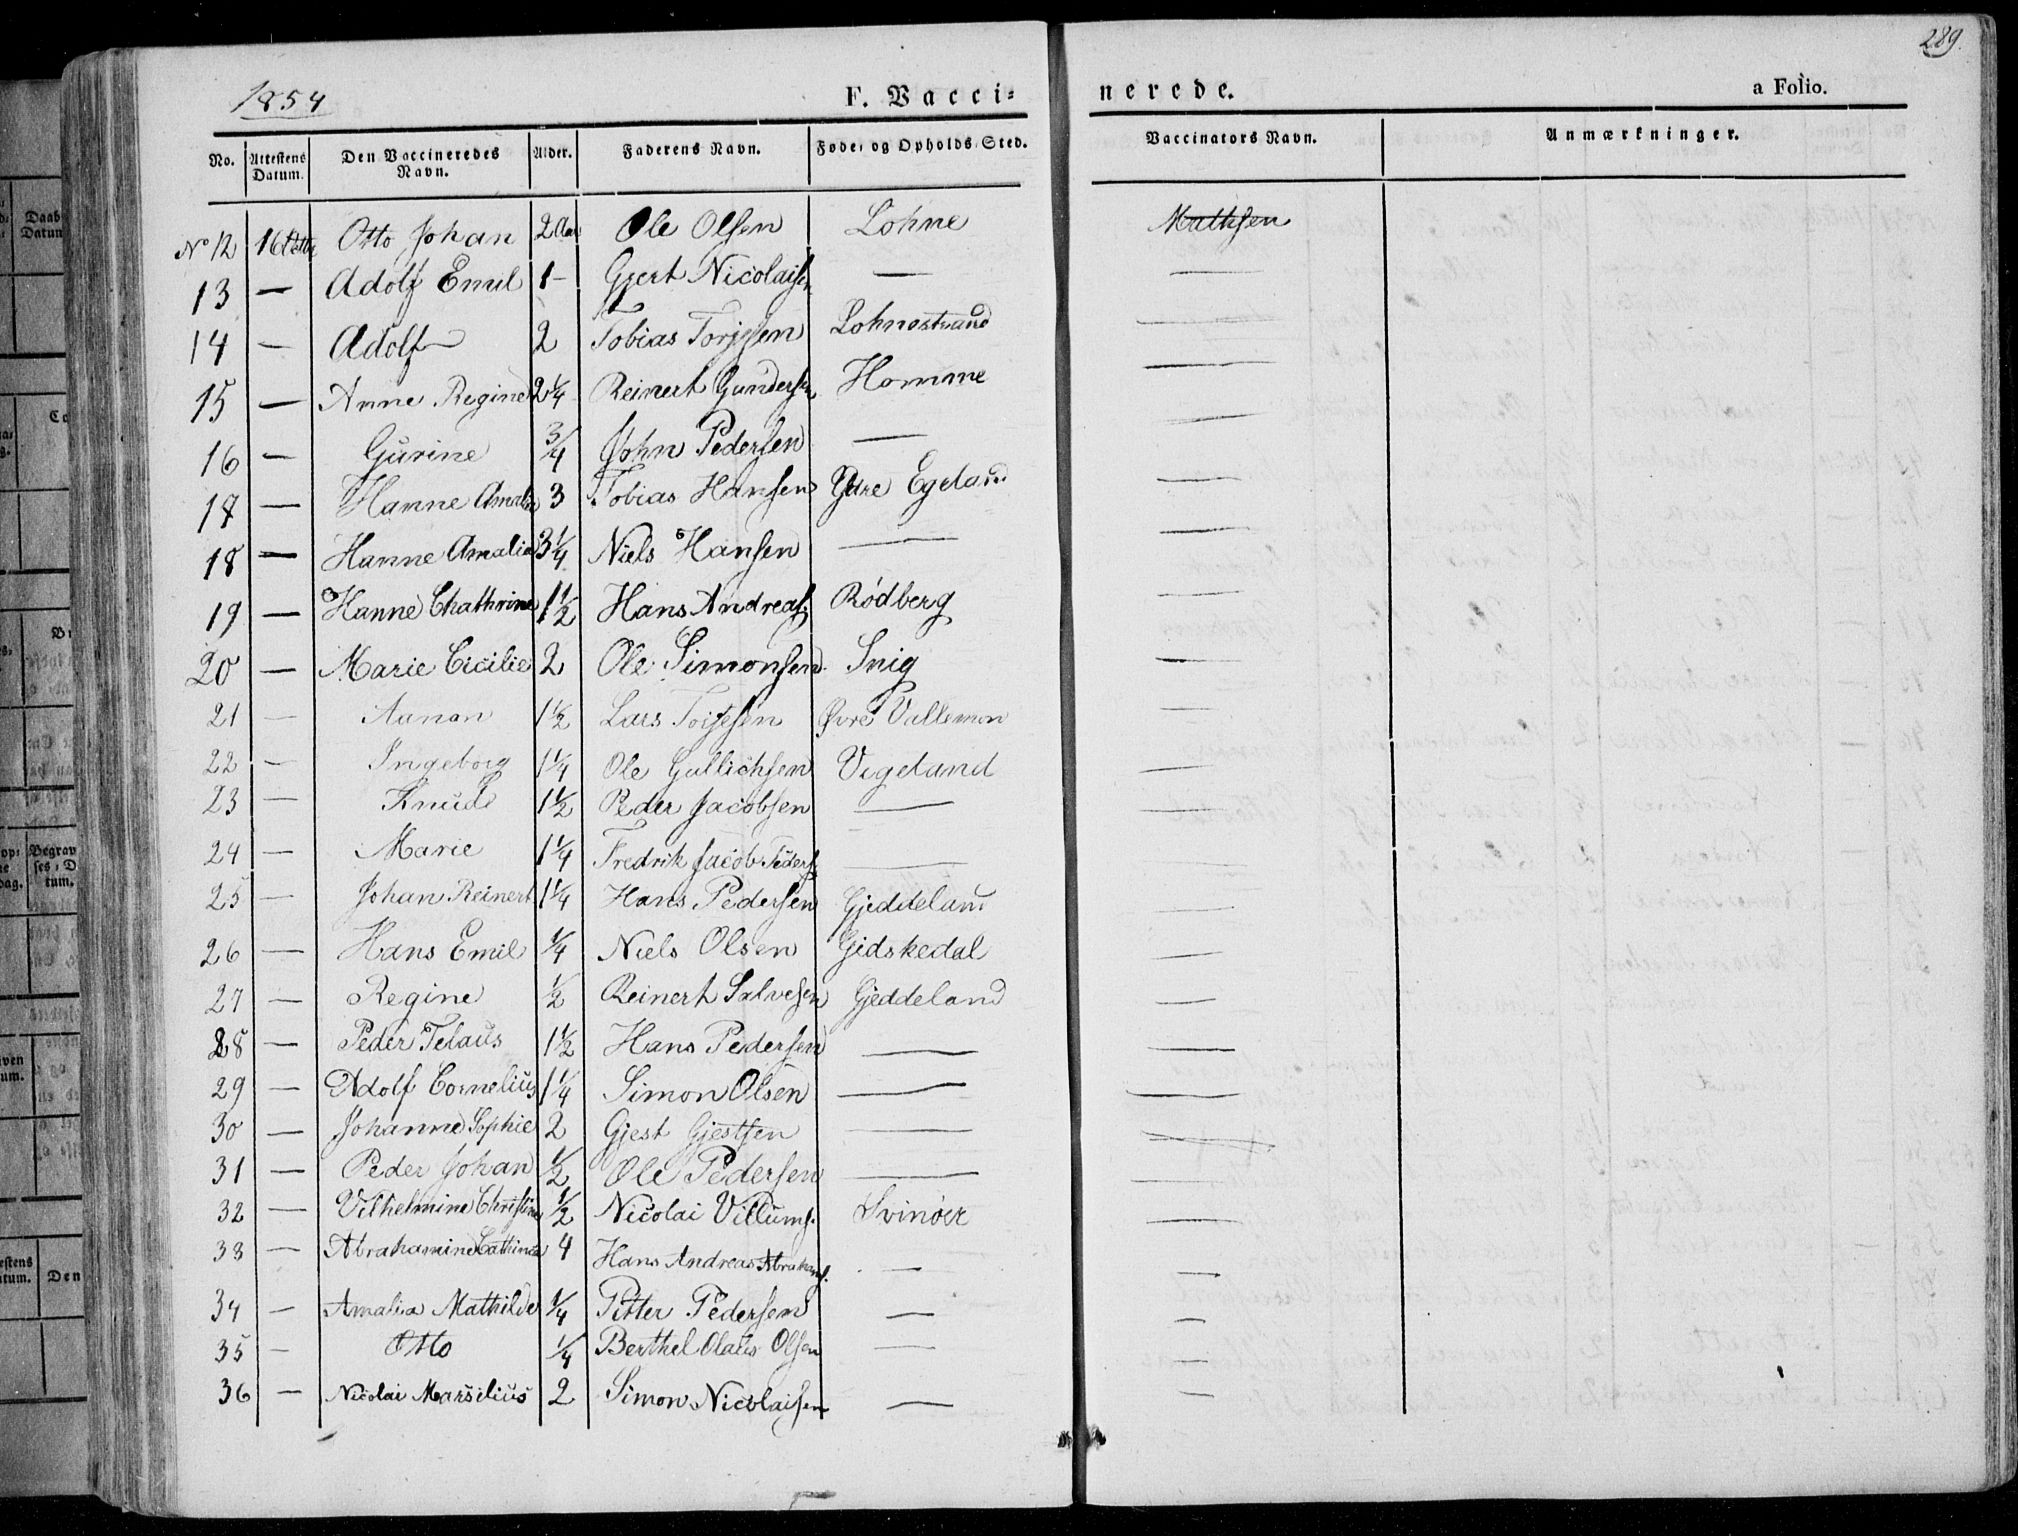 289.
1854 F. Vacci= nerede. a Folio.
No. Attestens Datum. Den Vaccineredes Navn. Alder. Faderens Navn. Føde= og Opholds=Sted. Vaccinators Navn. Anmærkninger.
No 12 Otto Johan 2 Ole Olsen Lohne Mathsen
13 — Adolf Emil 1 – Gjert Nicolaisen — —
14 — Adolf 2 Tobias Torjesen Lohnestrand —
15 — Anne Regine 2 1/4 Reinert Gundersen Homme —
16 — Gurine 3/4 John Pedersen — —
17 — Hanne Amalia 3 Tobias Hansen Ydre Egeland —
18 — Hanne Amalia 3 1/4 Niels Hansen — —
19 — Hanne Chathrine 1 1/2 Hans Andreas Rødberg —
20 — Marie Cicilie 2 Ole Simonsen Snig —
21 — Aanon 1 1/2 Lars Øvre Vallemon —
22 — Ingeborg 1 1/4 Ole Gullichsen Vigeland —
23 — Knud 1 1/2 Peder Jacobsen — —
24 — Marie 1 1/4 Fredrik Jacob Peders — —
25 — Johan Reinert 1 1/4 Hans Pedersen Gjeddeland —
26 — Hans Emil 1/4 Niels Olsen Gidskedal —
27 — Regine 1/2 Reinert Salvesen Gjeddeland —
28 — Peder Telaus 1 1/2 Hans Pedersen — —
29 — Adolf Cornelius 1 1/4 Simon Olsen — —
30 — Johanne Sophie 2 Gjest Gjestsen — —
31 — Peder Johan 1/2 Ole Pedersen — —
32 — Vilhelmine Christine 1/2 Nicolai Villums. Svinøer —
33 — Abrahamine 4 Hans Andreas Abrahams. — —
34 — Amalia Mathilde 1/4 Petter Pedersen — —
35 — Otto 1/4 Berthel Olaus Olsen — —
36 — Nicolai Marsilius 2 Simon Nicolaisen — —